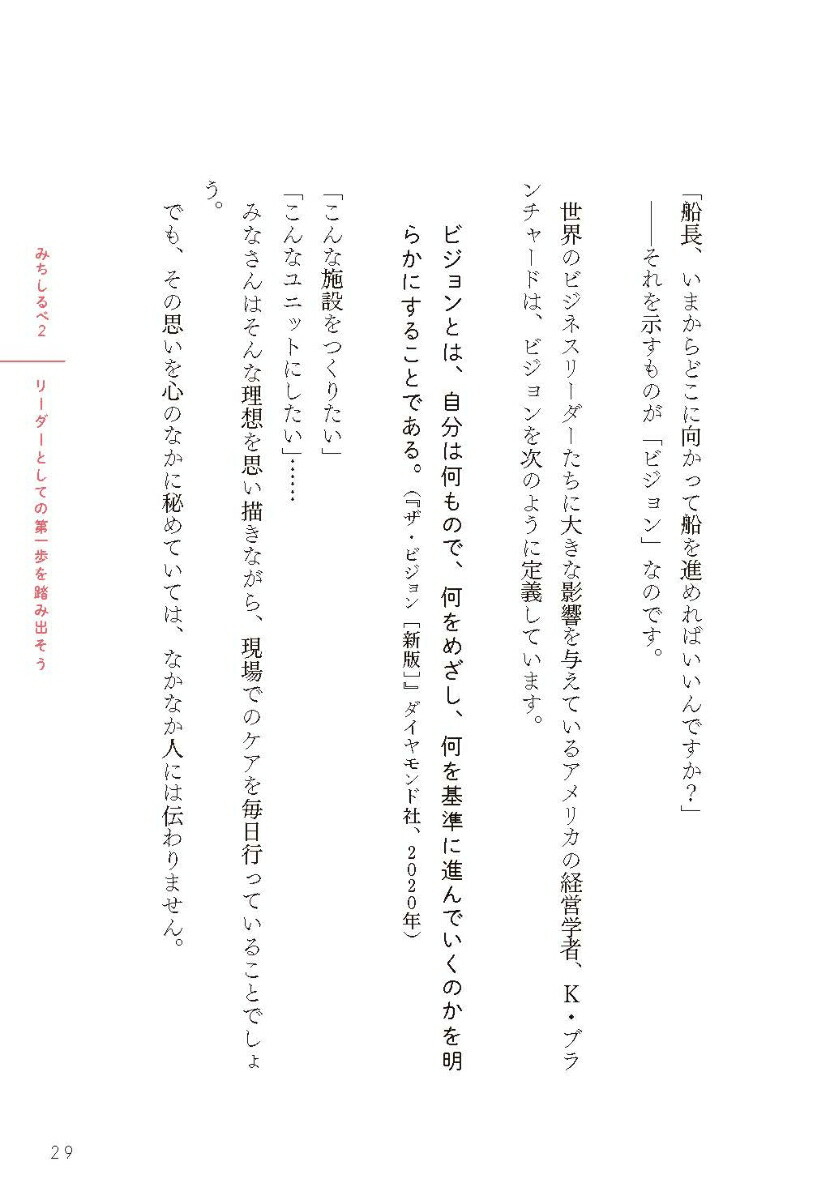 「船長、いまからどこに向かって船を進めればいいんですか？」
――それを示すものが「ビジョン」なのです。
世界のビジネスリーダーたちに大きな影響を与えているアメリカの経営学者、K・ブラ
ンチャードは、ビジョンを次のように定義しています。
ビジョンとは、自分は何もので、何をめざし、何を基準に進んでいくのかを明
らかにすることである。（『ザ・ビジョン［新版］』ダイヤモンド社、2020年）
「こんな施設をつくりたい」
「こんなユニットにしたい」……
みなさんはそんな理想を思い描きながら、現場でのケアを毎日行っていることでしょ
う。
でも、その思いを心のなかに秘めていては、なかなか人には伝わりません。
みちしるべ2
リーダーとしての第一歩を踏み出そう
29